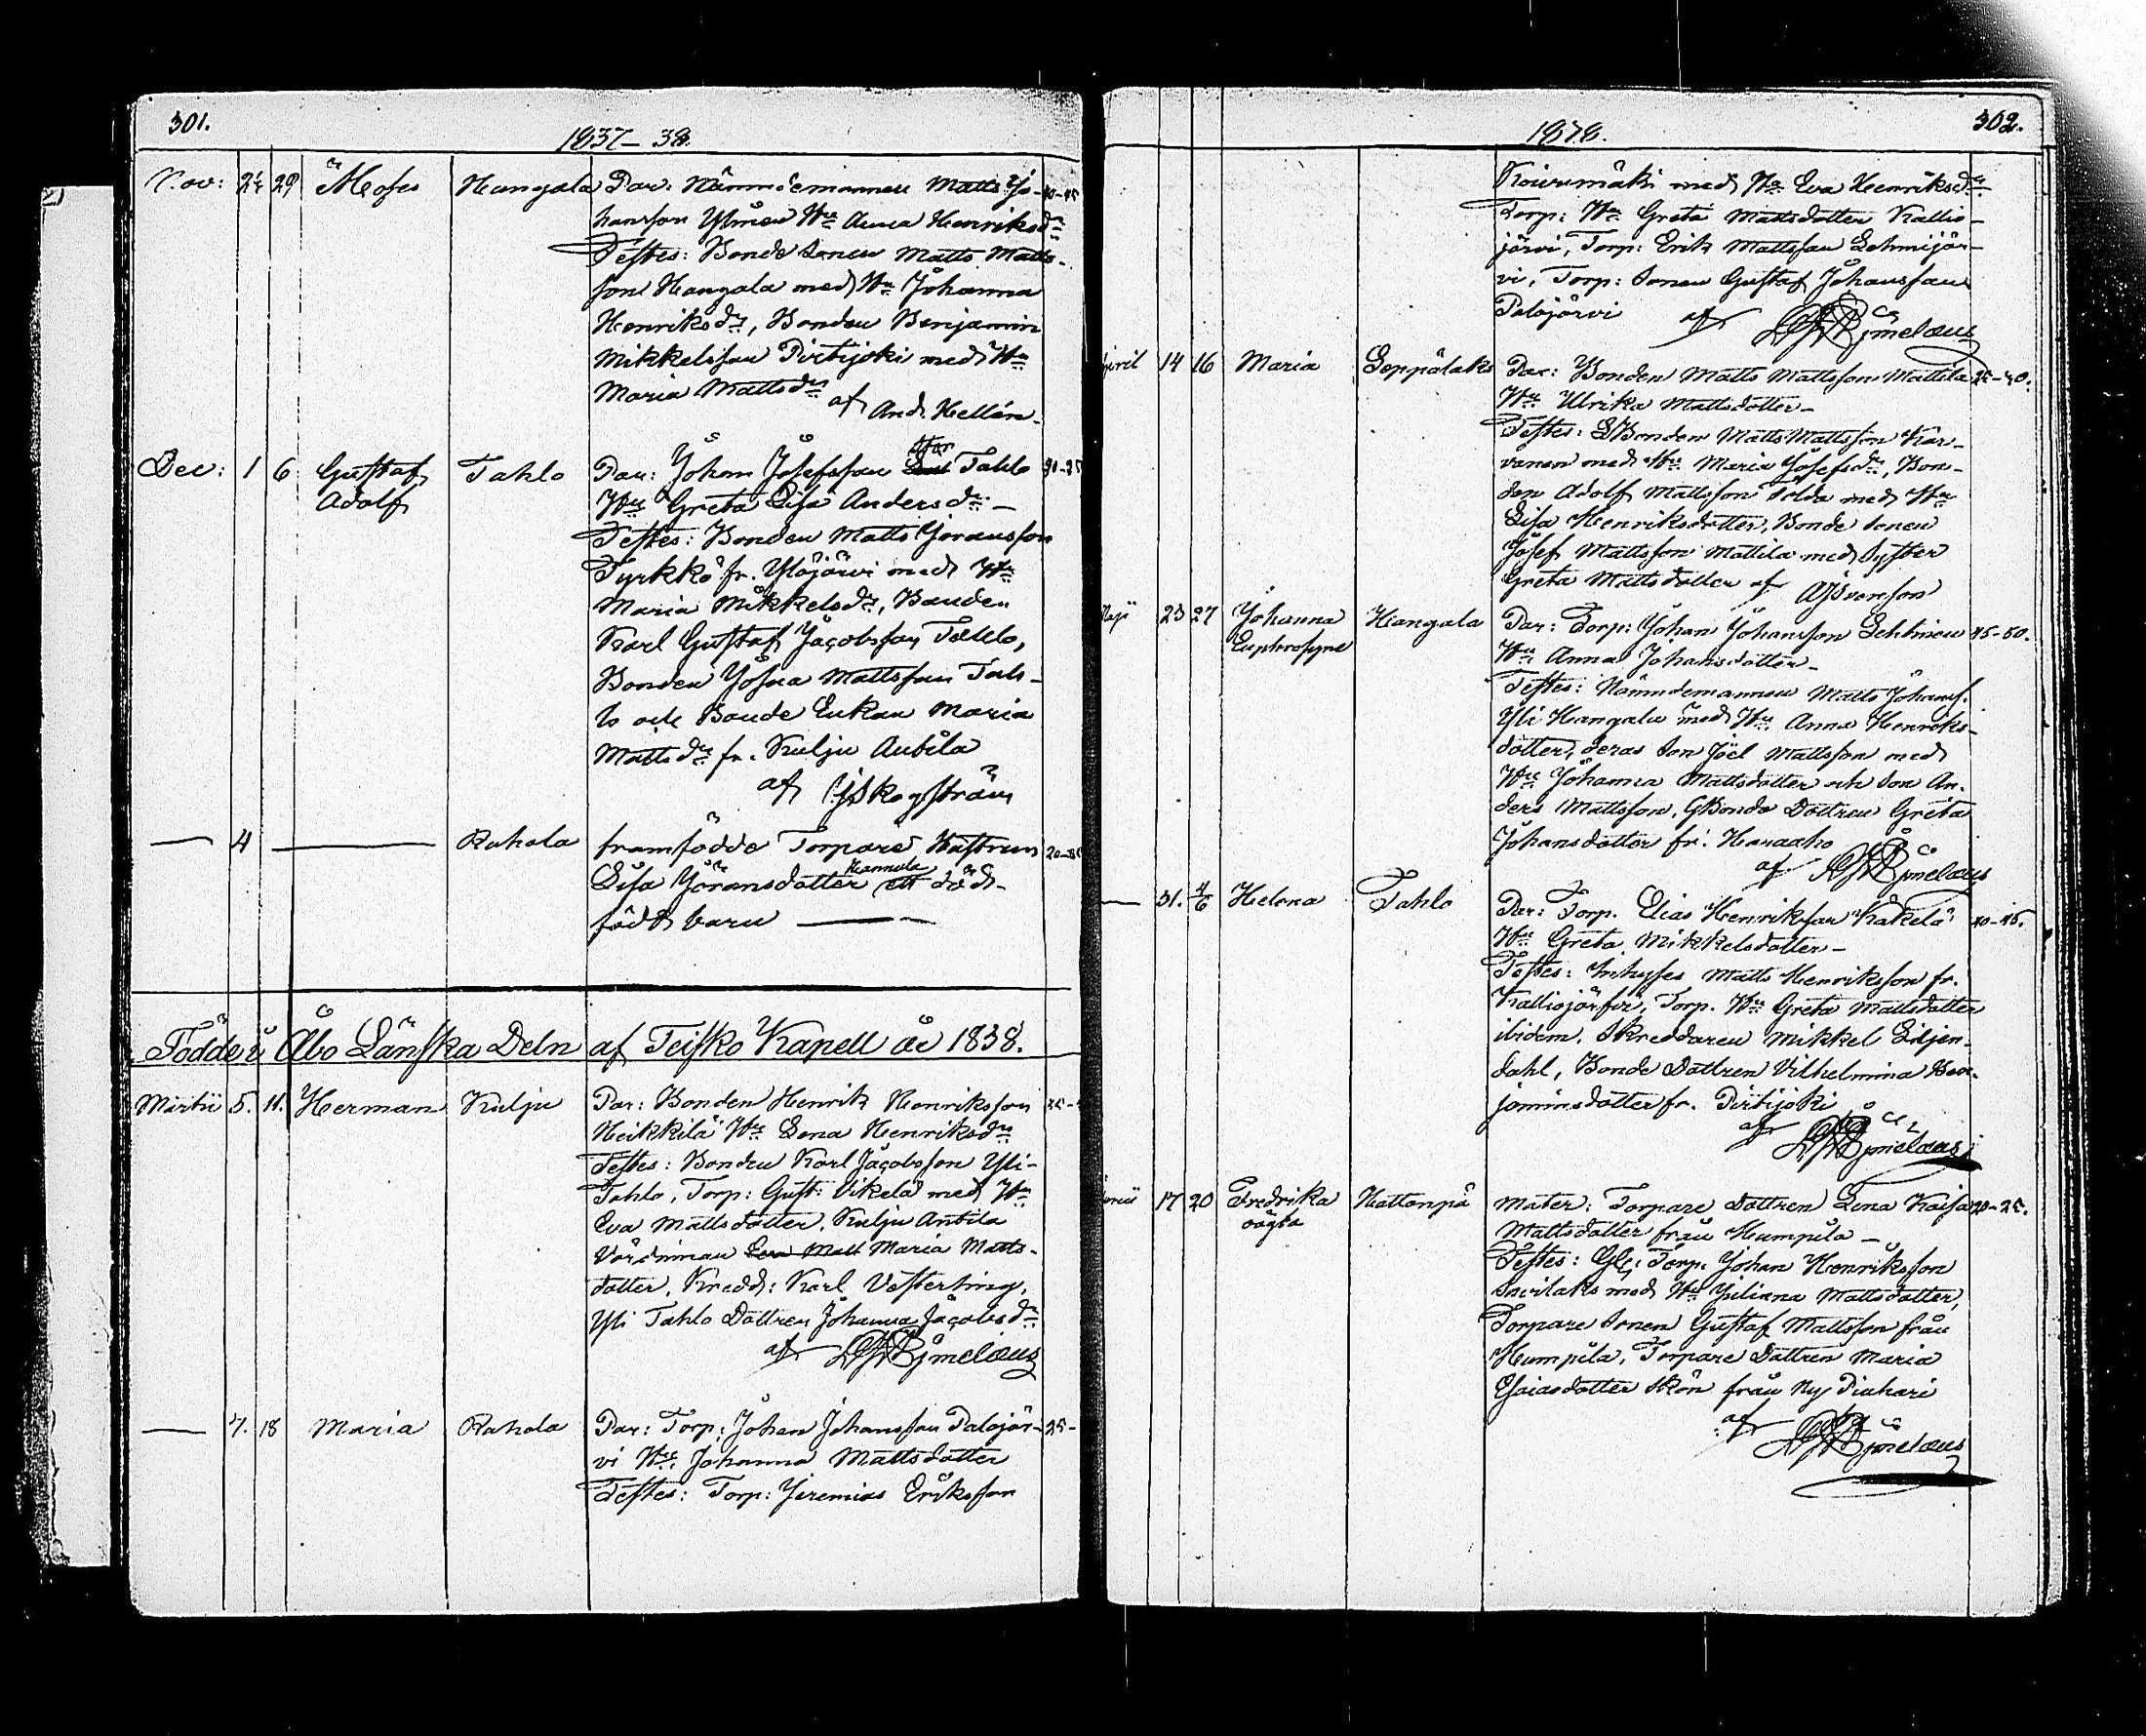 301.
1837-38.
Nov: 24 29 Moses Hangala Par: Nämndemannen Matts Jo- 40-45
hansson Ylinen Hu Anna Henriksdr
Testes: Bonde Sonen Matts Matts-
son Hangala med Hu Johanna
Henriksdr, Bonden Benjamin
Mikkelsson Pirttijoki med Hu
Maria Mattsdr
af And. Hellén.
Dec: 1 6 Gustaf Tahlo Par: Johan Josefsson Tahlo 30-35
Adolf Hu Greta Lisa Andersdr -
Testes: Bonden Matts Göransson
Tyrkkö fr. Ylöjärvi med Hu
Maria Mikkelsdr, Bonden
Karl Gustaf Jacobsson Tahlo,
Bonden Josua Mattsson Tah-
lo och Bonde Enkan Maria
Mattsdr fr. Kulju Anttila
af GJSkogström
— 4 — Rahola framfödde Torpare Hustrun 20-25
Hannula
Lisa Göransdotter ett död-
född barn —
Födde i Åbo Länska Deln af Teisko Kapell år 1838.
Martii 5. 11. Herman Kulju Par: Bonden Henrik Henriksson
Heikkilä Hu Lena Henriksdr
Testes: Bonden Karl Jacobsson Yli-
Tahlo, Torp: Gust: Vikelä med Hu
Eva Mattsdotter, Kulju Anttila
Värdinnan Eva Matt Maria Matts-
dotter, Skredd: Karl Vesterling,
Yli Tahlo Dottren Johanna Jacobsdr
af Bjmelæus
— 7. 18 Maria Rahola Par: Torp: Johan Johansson Palojär- 25-
vi Hu Johanna Mattsdotter
Testes: Torp: Jeremias Eriksson
302.
1838.
Koivumäki med Hu Eva Henriksdr
Torp: Hu Greta Mattsdotter Kallio-
järvi, Torp: Erik Mattsson Lehmijär-
vi, Torp: Sonen Gustaf Johansson
Palojärvi af Bjmelæus
April 14 16 Maria Seppälaks Par: Bonden Matts Mattsson Mattila 25-30.
Hu Ulrika Mattsdotter -
Testes: Bonden Matts Mattsson Kar-
vanen med Hu Maria Josefsdr, Bon-
den Adolf Mattsson Tolda med Hu
Lisa Henriksdotter, Bonde Sonen
Josef Mattsson Mattila med Syster
Greta Mattsdotter af AJSvenson
Maji 23 27 Johanna Hangala Par: Torp: Johan Johansson Lehtinen 45-50.
Euphrosyne Hu Anna Johansdotter -
Testes: Nämndemannen Matts Johanss.
Yli Hangala med Hu Anna Henriks-
dotter, deras Son Joel Mattsson med
Hu Johanna Mattsdotter och Son An-
ders Mattsson, Bonde Dottren Greta
Johansdotter fr: Hanaaho
af Bjmelæus
— 31. 4/6 Helena Tahlo Par: Torp. Elias Henriksson Käkelä 40-45.
Hu Greta Mikkelsdotter -
Testes: Inhyses Matts Henriksson fr.
Kalliojärfvi, Torp. Hu Greta Mattsdotter
ibidem. Skreddaren Mikkel Liljen-
dahl, Bonde Dottren Vilhelmina Ben-
jaminsdotter fr. Pirttijoki
af Bjmelæus
Junii 17 20 Fredrika Kattonpä Mater: Torpare Dottren Lena Kaisa 20-25.
oägta Mattsdotter från Humpila -
Testes: Torp: Johan Henriksson
Savilaks med Hu Juliana Mattsdotter,
Torpare Sonen Gustaf Mattsson från
Humpila, Torpare Dottren Maria
Esaiasdotter Skön från Ny Piuhari
af Bjmelæus